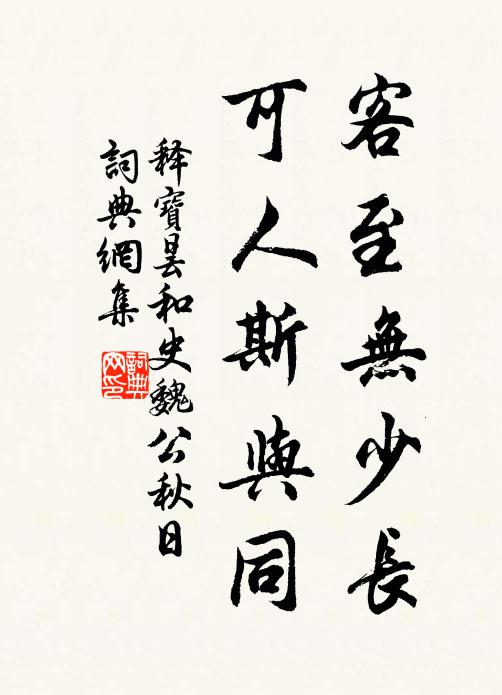 客至無少長
可人斯與同
释寶曇和史魏公秋日
詞典網集
詞典网印